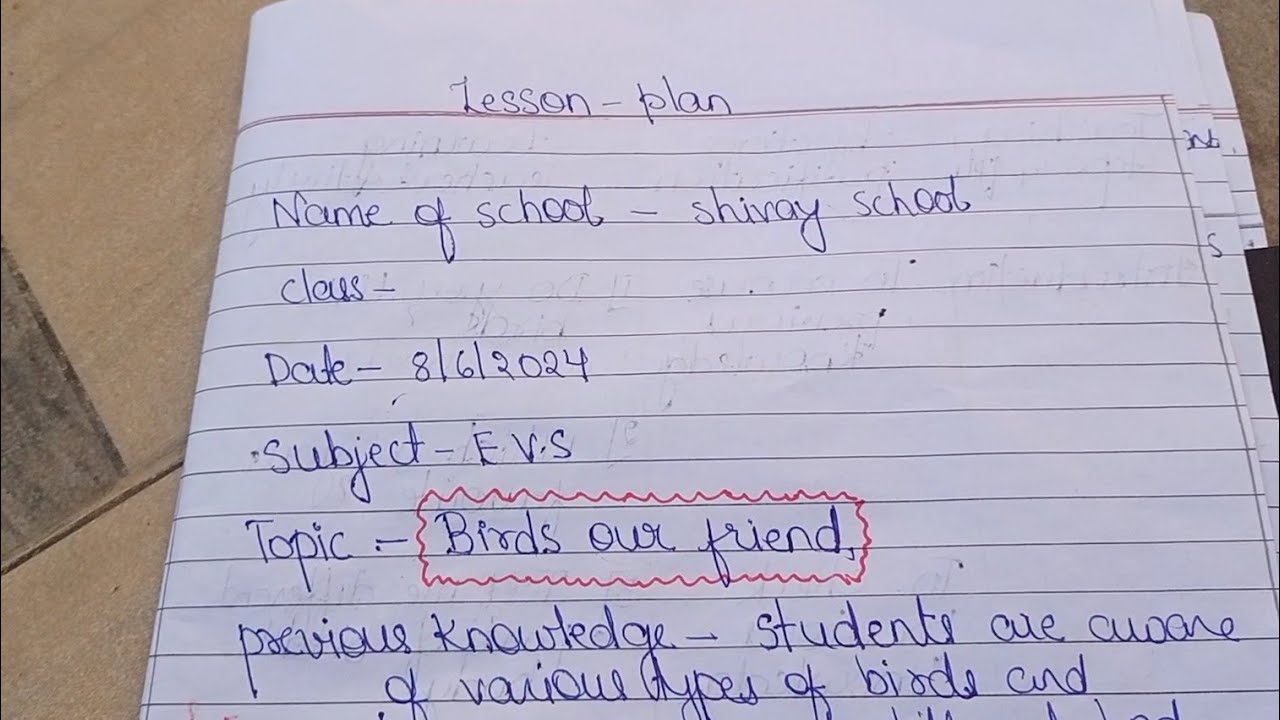 Lesson - plan
Name of school - shivay school
class -
Date - 8/6/2024
Subject - E.V.S
Topic :- Birds our friend,
previous knowledge - students are aware
of various types of birds and